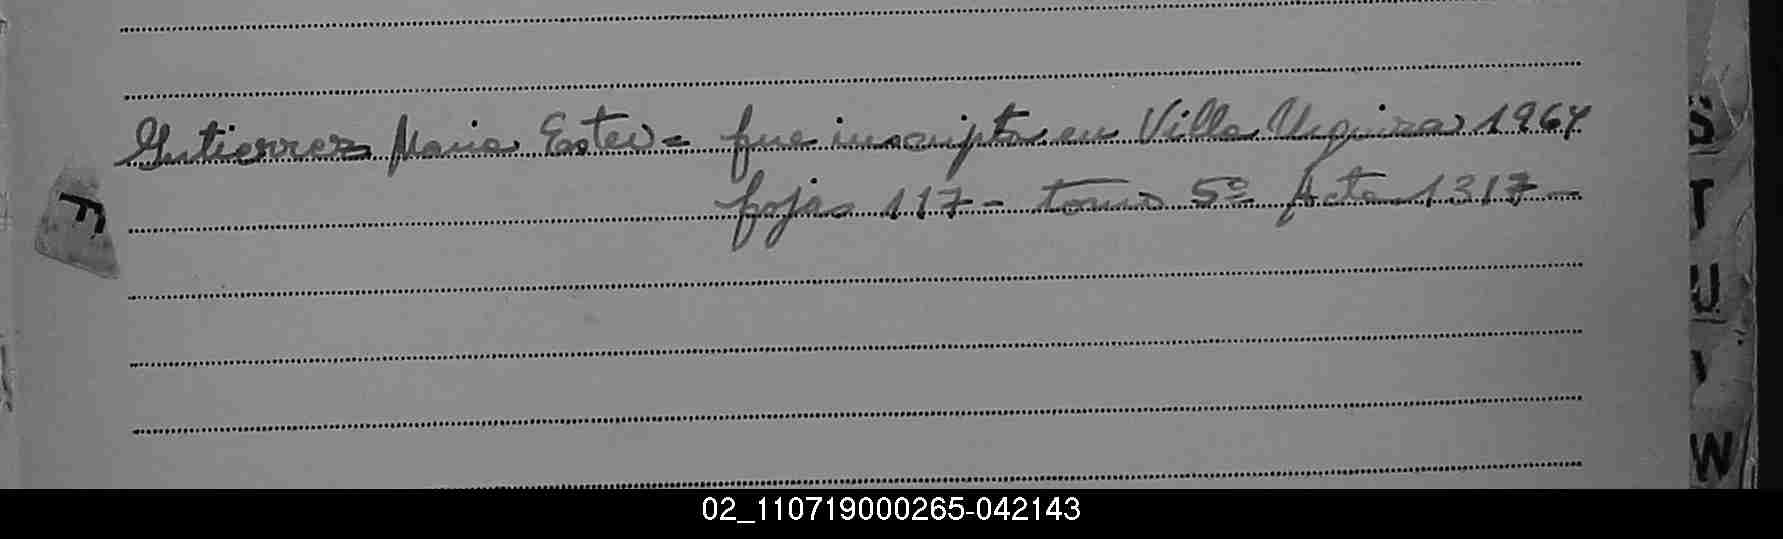 Gutierrez Maria Ester = fue inscripta en Villa Urquiza 1964
fojas 117 - tomo 5º Acta 1317 -
F
S
T
U
V
W
02_110719000265-042143